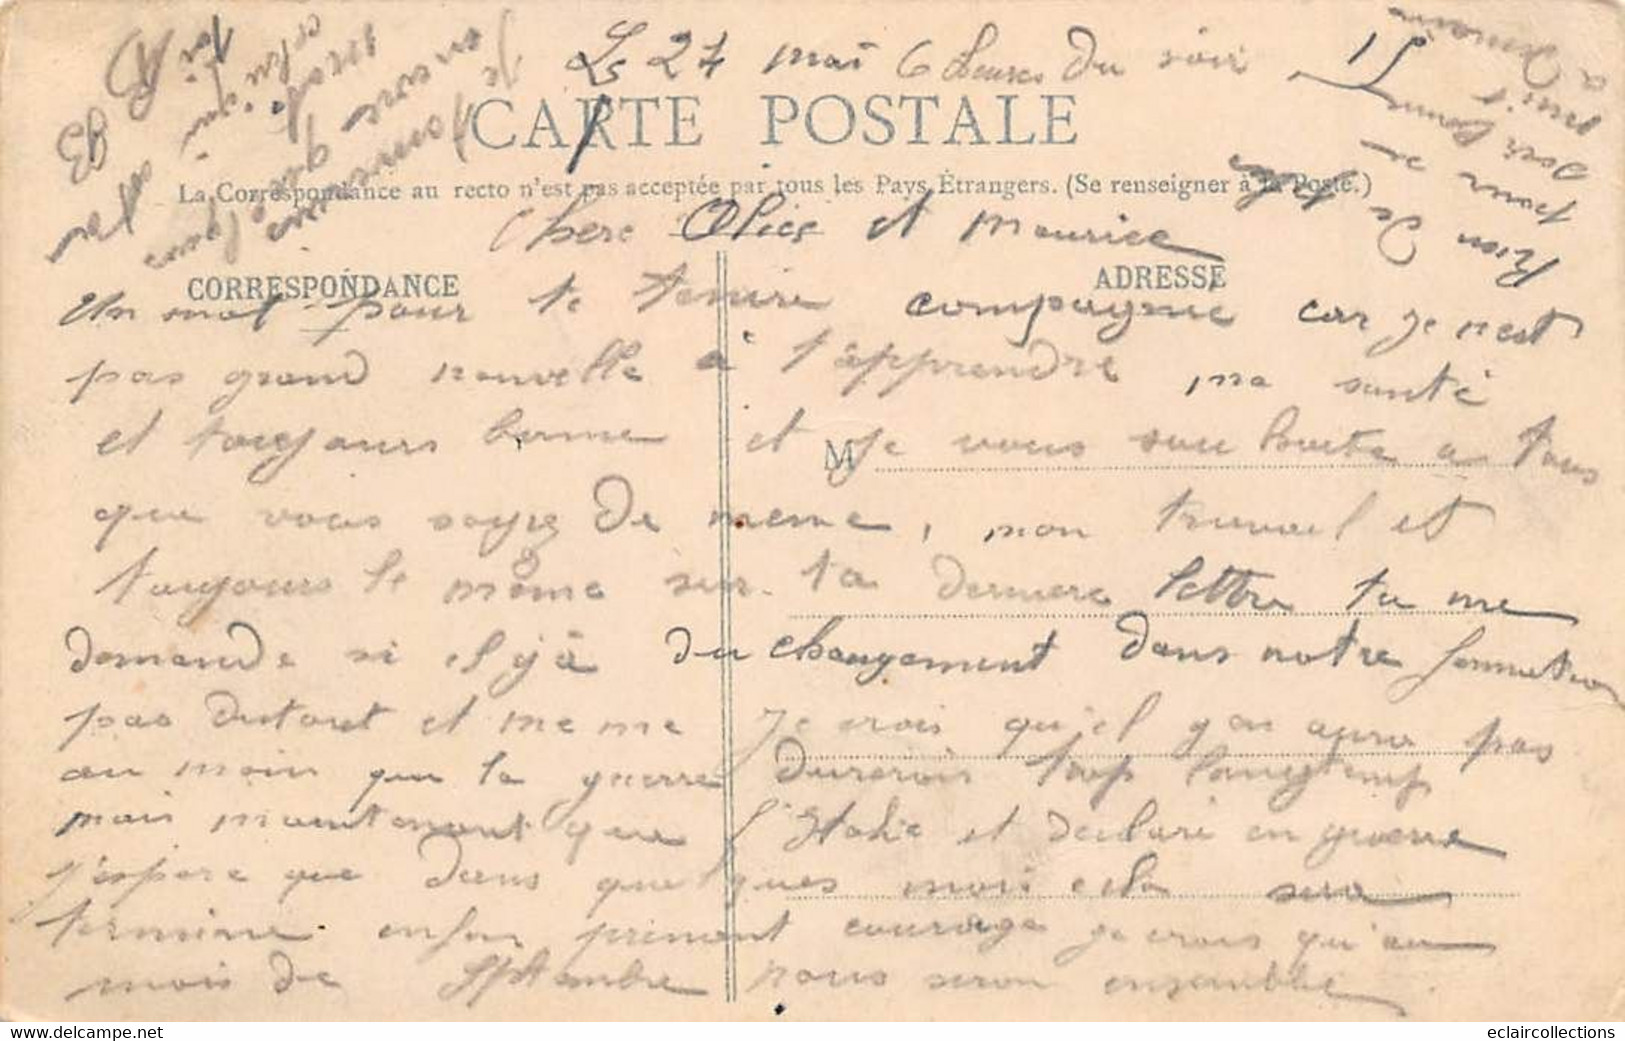 Le 24 mai 6 heures du soir
CARTE POSTALE
La Correspondance au recto n'est pas acceptée par tous les Pays Étrangers. (Se renseigner à la Poste.)
Chere Alice et Maurice
CORRESPONDANCE
ADRESSE
M
Un mot pour te tenire compagnie car je n'est
pas grand nouvelle à t'apprendre, ma santé
et toujours bonne et je vous souhaite a tous
que vous soyez de meme, mon travail et
toujours le même sur ta dernière lettre tu me
demande si il y à du changement dans notre formation
pas dutout et meme je crois qu'il y en aura pas
au moin que la guerre durerais trop longtemp
mais maintenant que l'Italie et declaré en guerre
j'espere que dans quelques mois cela sera
terminé enfin prenont courage je crois qu'au
mois de Septembre nous seron ensemble
Rien de
pour
bonne
nuit
a demain
Je
encore
eclaircollections